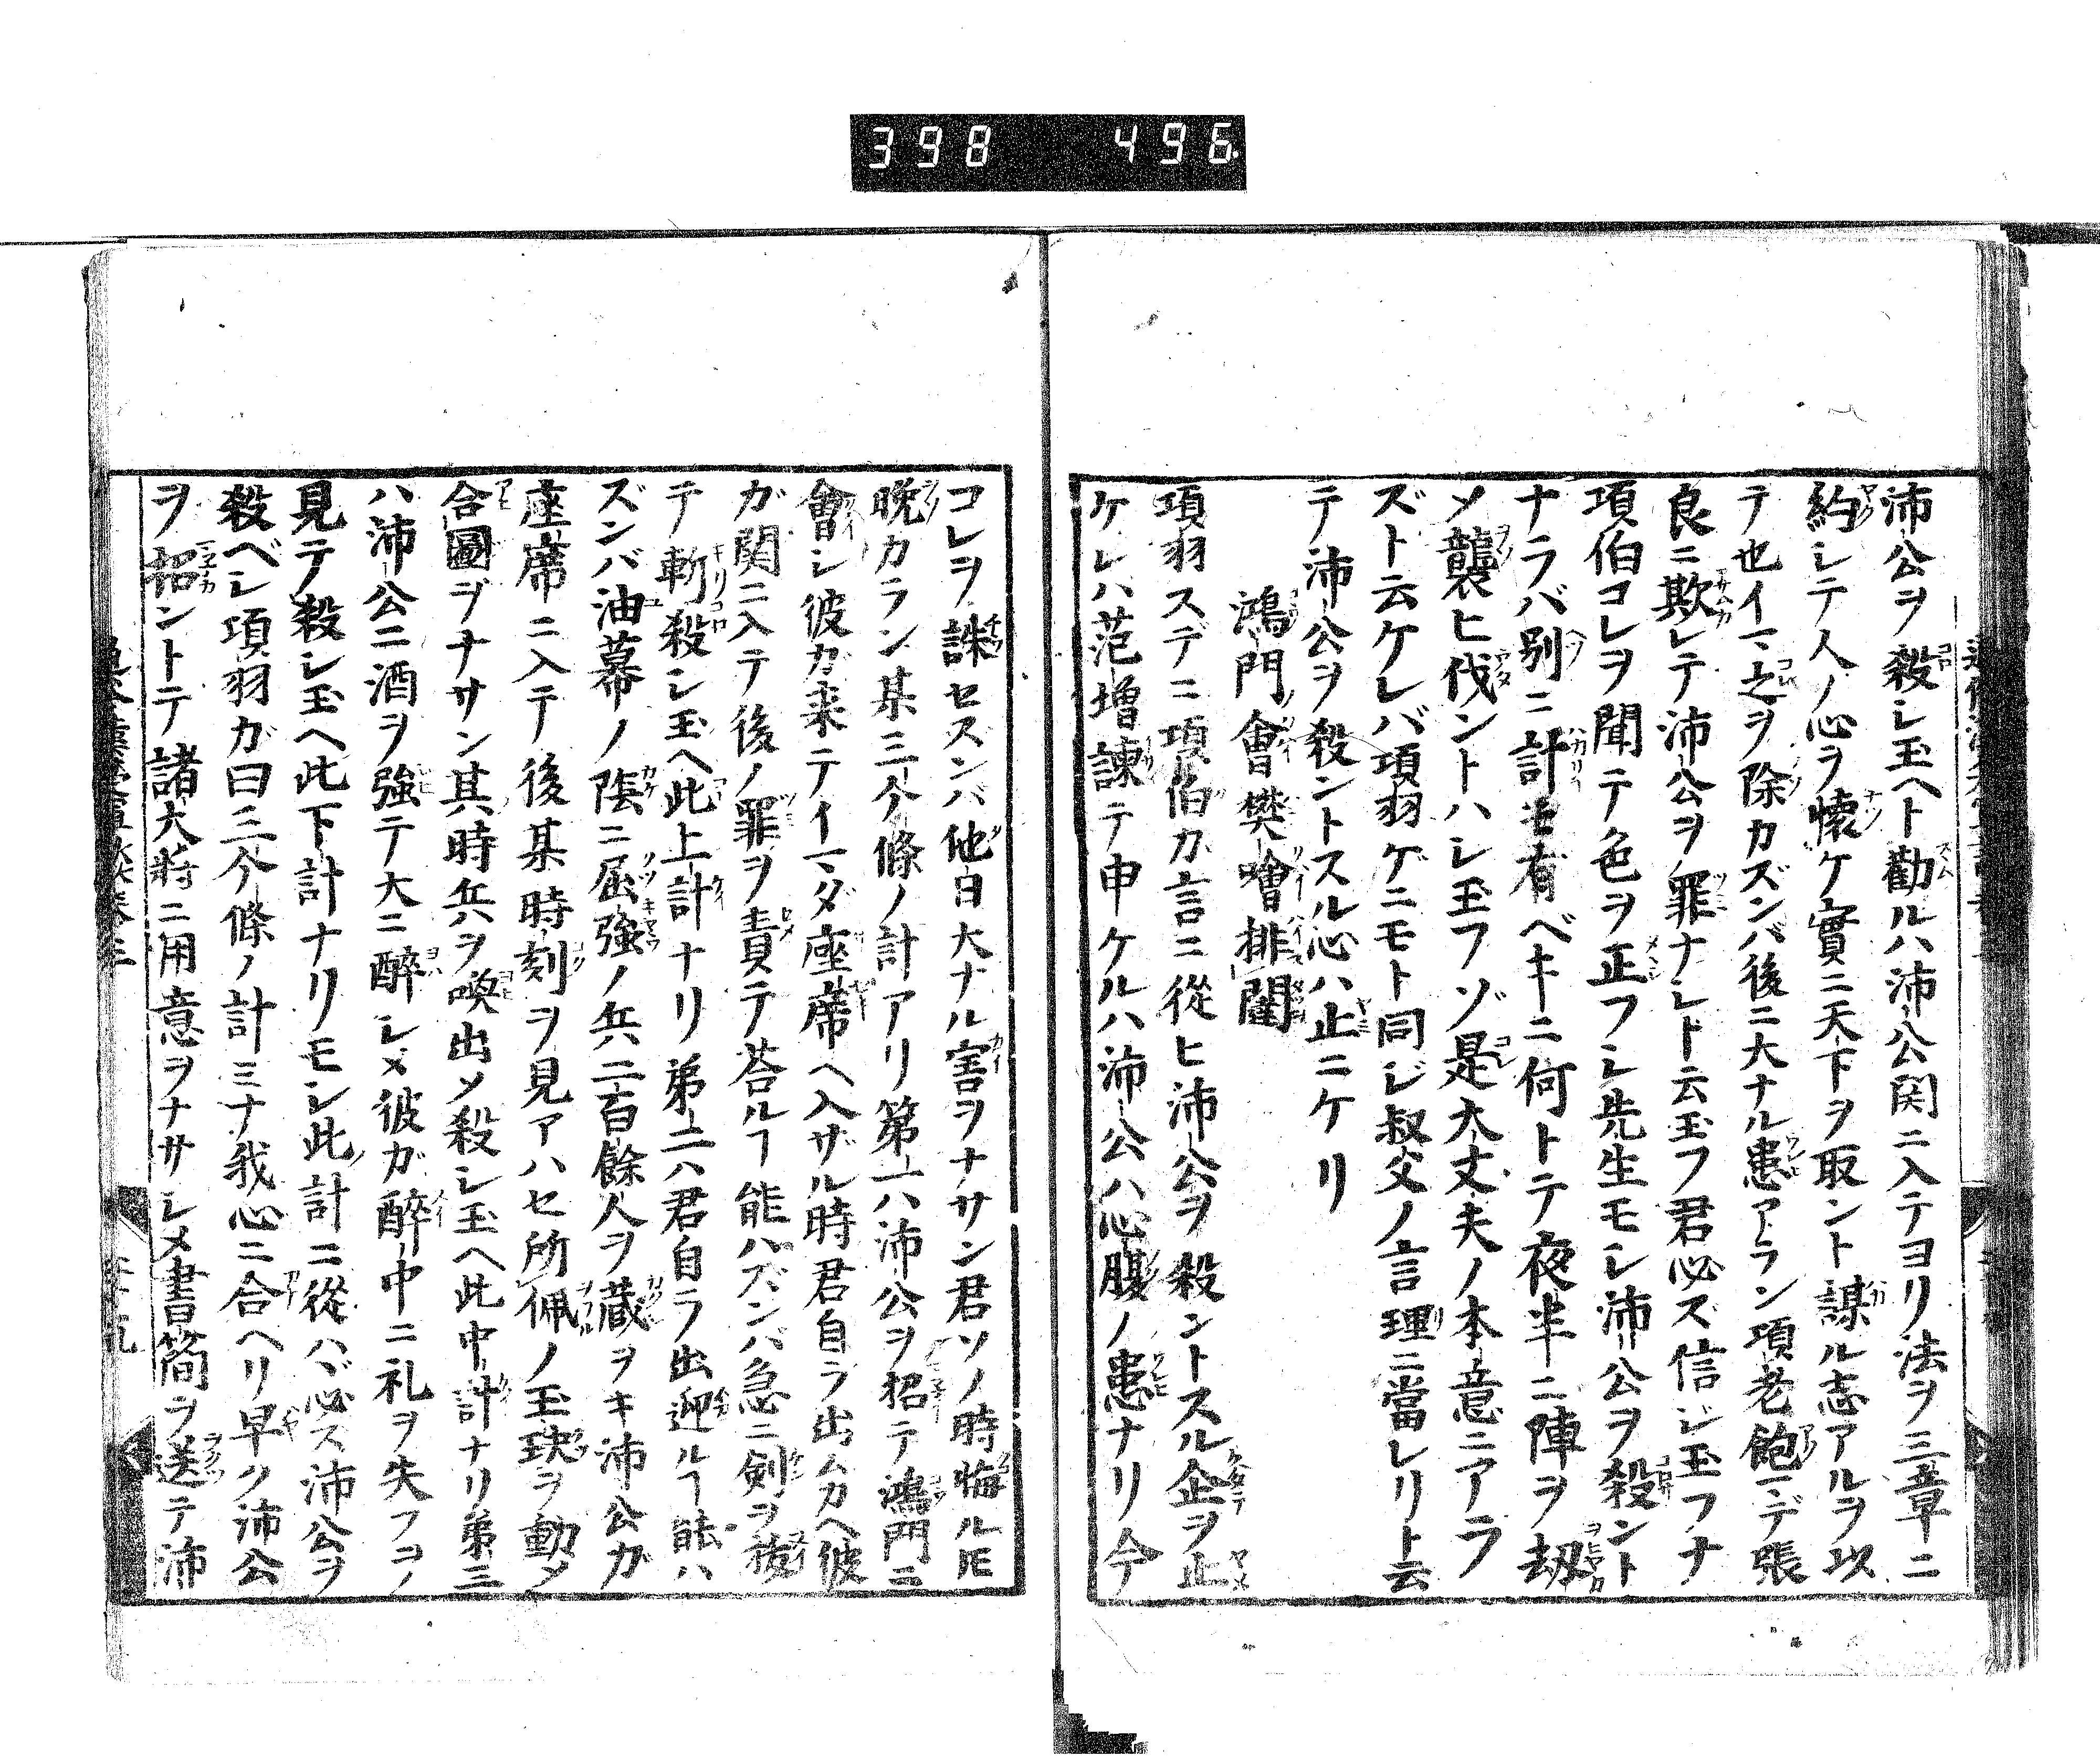 398 496
沛公ヲ殺シ玉ヘト勸ルハ沛公関ニ入テヨリ法ヲ三章ニ
約シテ人ノ心ヲ懐ケ實ニ天下ヲ取ント謀ル志アルヲ以
テ也イマ之ヲ除カズンバ後ニ大ナル患アラン項老飽マデ張
良ニ欺レテ沛公ヲ罪ナシト云玉フ君必ズ信ジ玉フナ
項伯コレヲ聞テ色ヲ正フシ先生モシ沛公ヲ殺ント
ナラバ別ニ計モ有ベキニ何トテ夜半ニ陣ヲ劫
メ襲ヒ伐ントハシ玉フゾ是大丈夫ノ本意ニアラ
ズト云ケレバ項羽ゲニモト同ジ叔父ノ言理ニ當レリト云
テ沛公ヲ殺ントスル心ハ止ニケリ
鴻門會樊噲排闥
項羽ステニ項伯カ言ニ從ヒ沛公ヲ殺ントスル企ヲ止
ケレハ范増諫テ申ケルハ沛公ハ心腹ノ患ナリ今
コレヲ誅セスンバ他日大ナル害ヲナサン君ソノ時悔ル𪜈
晩カラン某三个條ノ計アリ第一ハ沛公ヲ招テ鴻門ニ
會シ彼カ来テイマダ座席ヘ入ザル時君自ラ出ムカヘ彼
ガ関ニ入テ後ノ罪ヲ責テ荅ルヿ能ハズンバ急ニ剣ヲ拔
テ斬殺シ玉ヘ此上計ナリ第二ハ君自ラ出迎ルヿ能ハ
ズンバ油幕ノ陰ニ屈強ノ兵二百餘人ヲ蔵ヲキ沛公カ
座席ニ入テ後某時刻ヲ見アハセ所佩ノ玉玦ヲ動メ
合圖ヲナサン其時兵ヲ喚出メ殺シ玉ヘ此中計ナリ第三
ハ沛公ニ酒ヲ強テ大ニ醉シメ彼ガ醉中ニ礼ヲ失フヲ
見テ殺シ玉ヘ此下計ナリモシ此計ニ從ハヾ必ス沛公ヲ
殺ベシ項羽ガ曰三个條ノ計ミナ我心ニ合ヘリ早ク沛公
ヲ招ントテ諸大将ニ用意ヲナサシメ書簡ヲ送テ沛